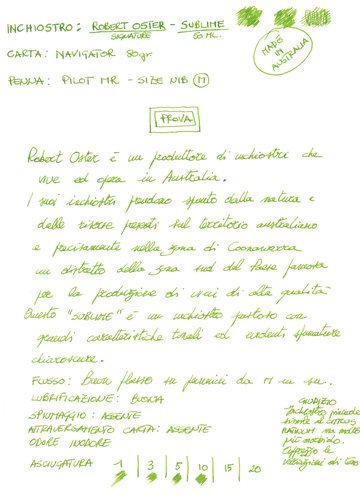 INCHIOSTRO: ROBERT OSTER - SUBLIME
SIGNATURE 50 ML.
MADE IN AUSTRALIA
CARTA: NAVIGATOR 80gr.
PENNA: PILOT MR - SIZE NIB M
PROVA
Robert Oster è un produttore di inchiostri che
vive ed opera in Australia.
I suoi inchiostri prendono spunto dalla natura e
dalle risorse presenti sul territorio australiano
e precisamente nella zona di Coonawarra
un distretto della zona sud del Paese famosa
per la produzione di vini di alta qualità
Questo "SUBLIME" è un inchiostro gustoso con
grandi caratteristiche tonali ed ardenti sfumature
chiaroscure.
FLUSSO: Buon flusso su pennini da M in su.
LUBRIFICAZIONE: BUONA
SPIUMAGGIO: ASSENTE
ATTRAVERSAMENTO CARTA: ASSENTE
ODORE INODORE
ASCIUGATURA 1 | 3 | 5 | 10 | 15 | 20
GIUDIZIO
Inchiostro piacevole
simile al CITRUS
PLATINUM ma molto
più morbido.
Apprezzo le
variazioni di tono